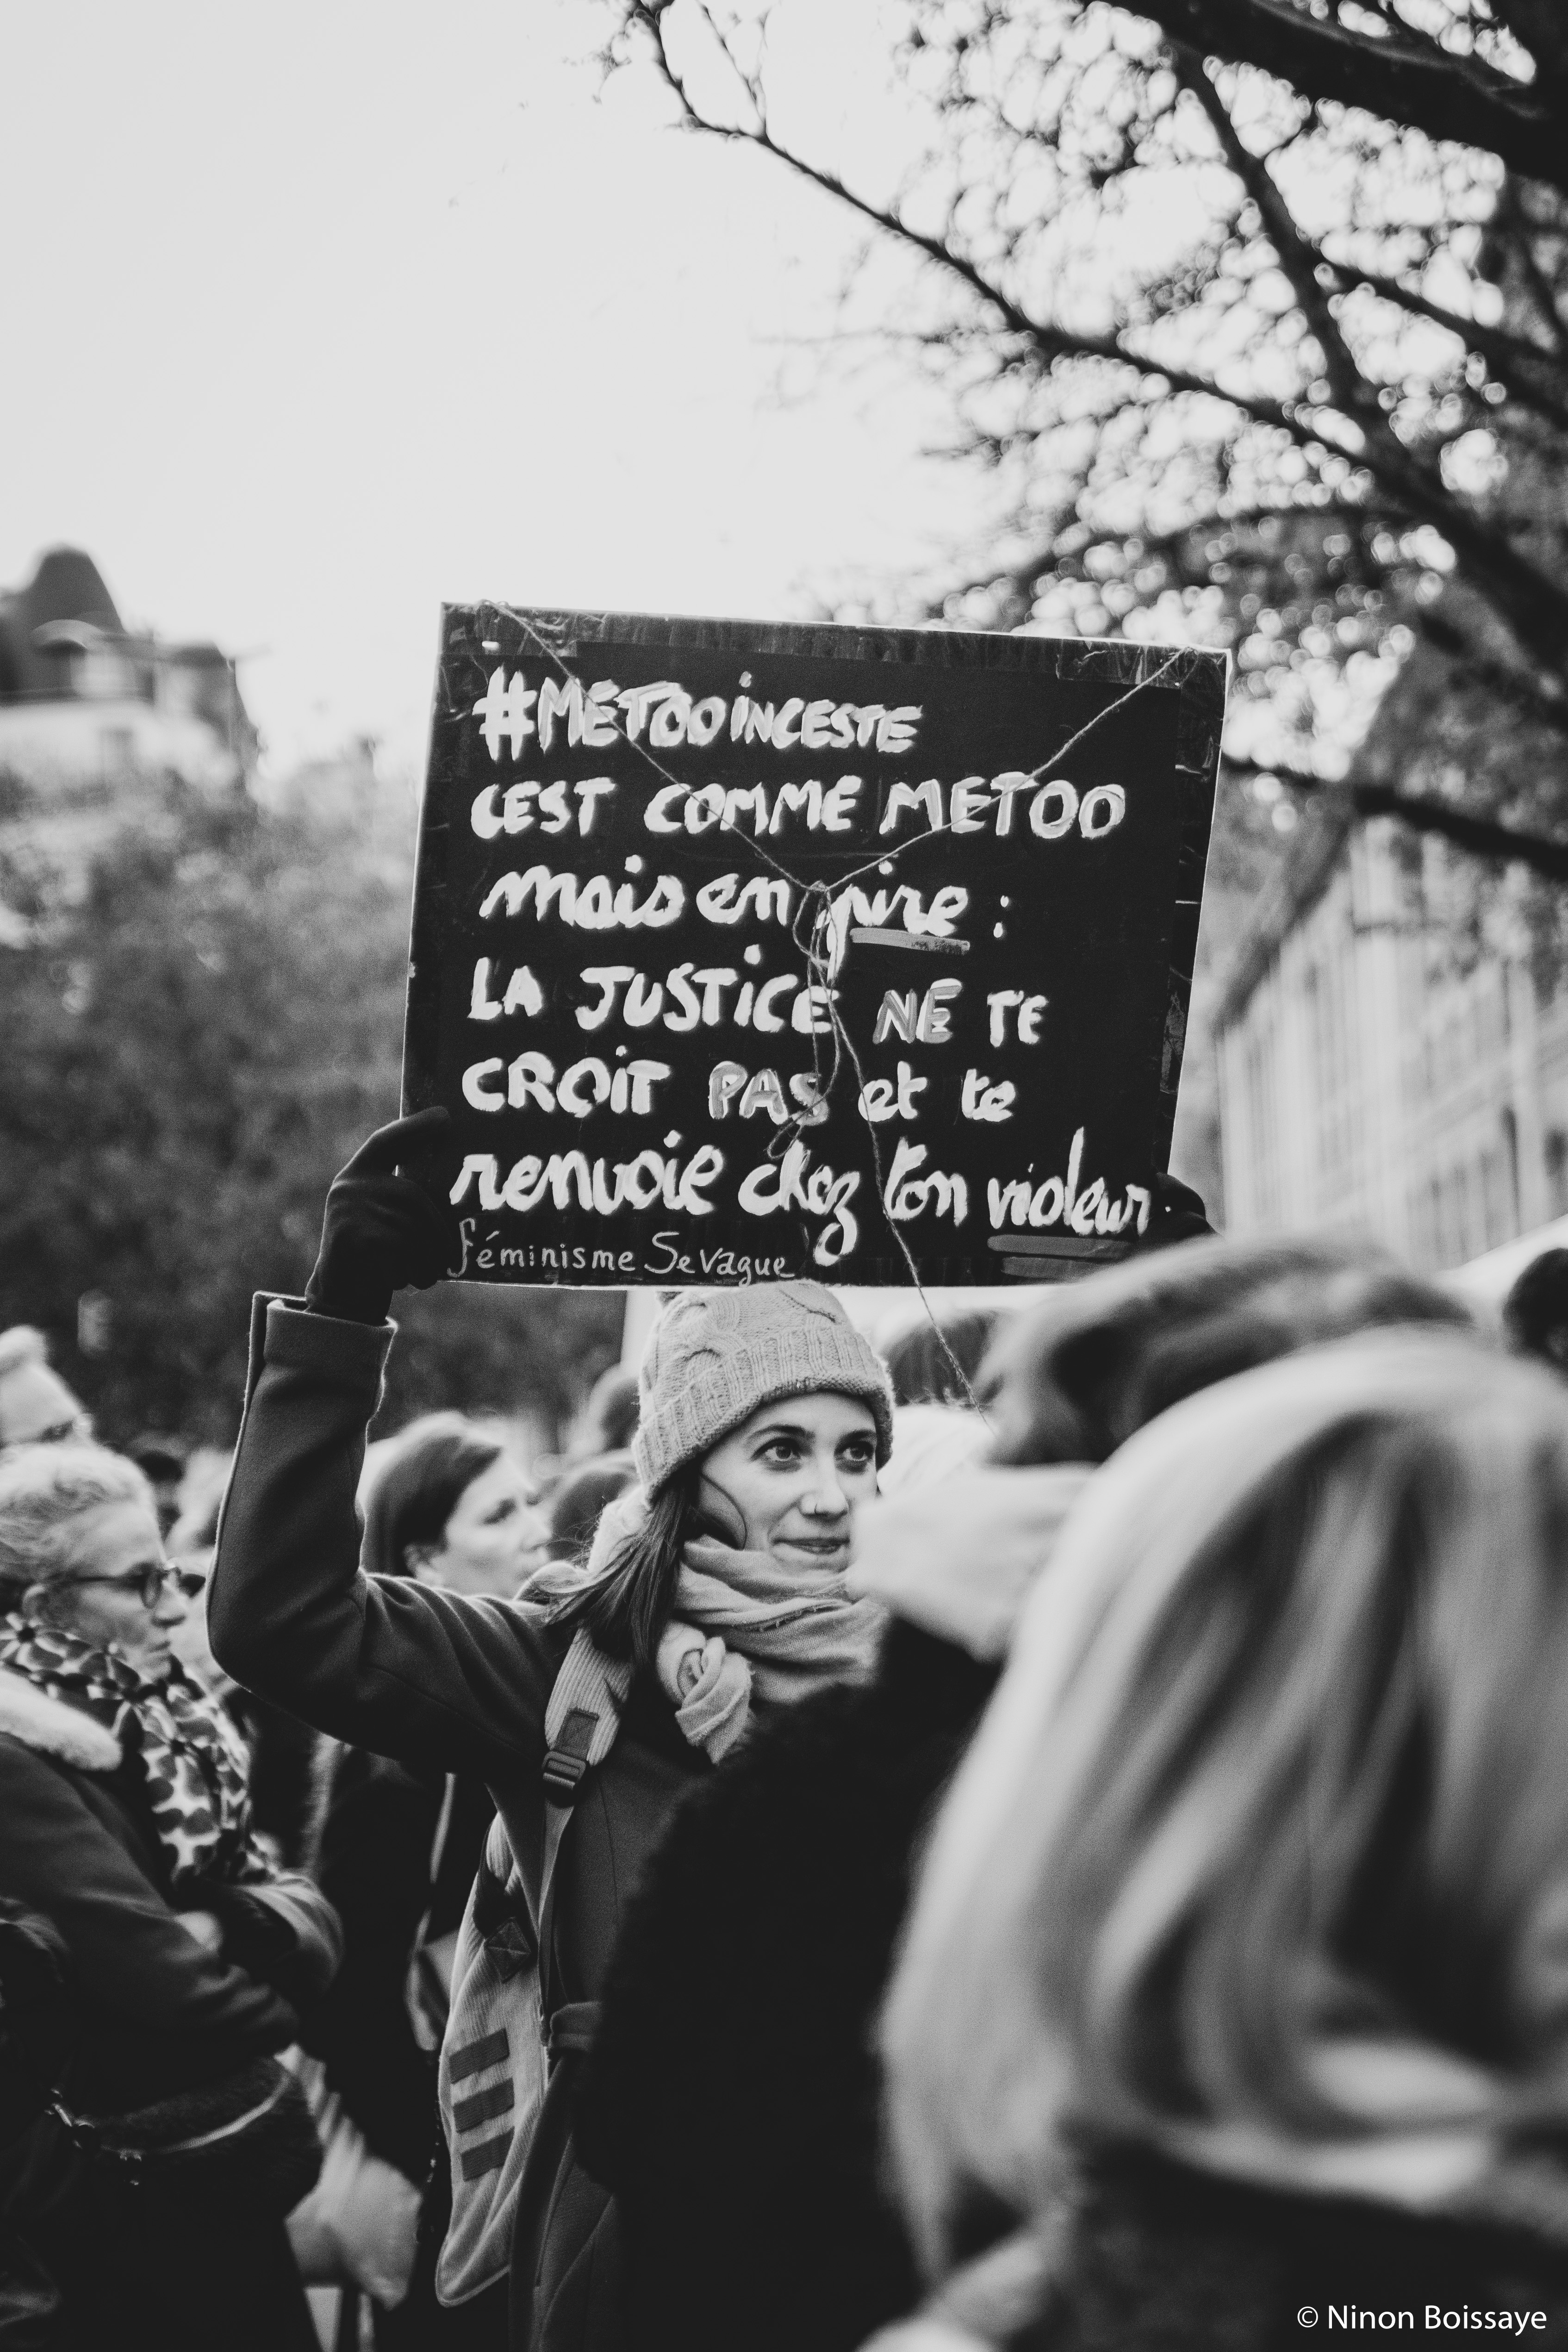 #METOOiNCESTE
CEST COMME METOO
mais en pire :
LA JUSTiCE NE TE
CROiT PAS et te
renvoie chez ton violeur.
féminisme Sevague
© Ninon Boissaye